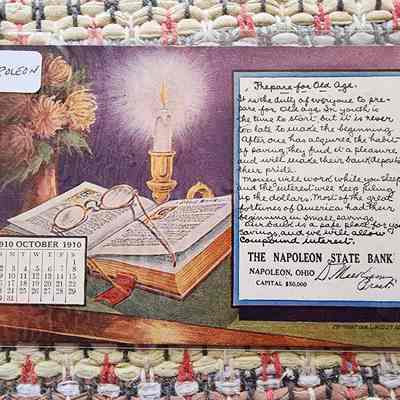 POLEON
Prepare for Old Age.
It is the duty of everyone to pre-
pare for Old age. In youth is
the time to start but it is never
too late to make the beginning.
After one has acquired the habit
of saving, they find it a pleasure
and will make their bank deposits
their pride.
Money will work while you sleep
and the interest will keep piling
up the dollars. Most of the great
fortunes of America had their
beginning in small savings.
Our bank is a safe place for you
savings, and we will allow
Compound interest.
THE NAPOLEON STATE BANK
NAPOLEON, OHIO
CAPITAL $50,000
910 OCTOBER 1910